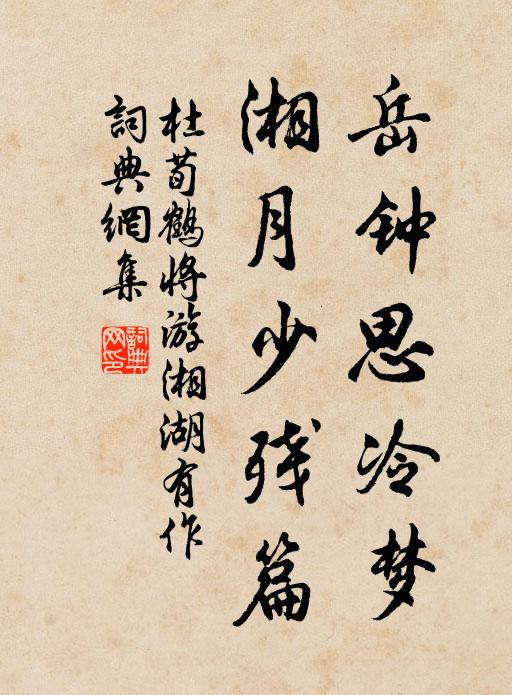 岳钟思冷梦
湘月少残篇
杜荀鶴将游湘湖有作
詞典網集
詞典网印